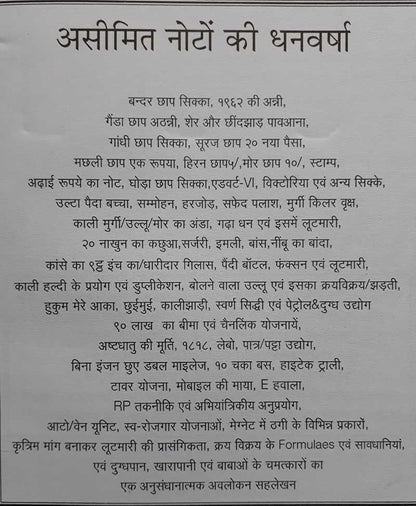 असीमित नोटों की धनवर्षा
बन्दर छाप सिक्का, १९६२ की अन्नी,
गैंडा छाप अठन्नी, शेर और छींदझाड़ पावआना,
गांधी छाप सिक्का, सूरज छाप २० नया पैसा,
मछली छाप एक रूपया, हिरन छाप५/,मोर छाप १०/, स्टाम्प,
अढ़ाई रूपये का नोट, घोड़ा छाप सिक्का,एडवर्ट-VI, विक्टोरिया एवं अन्य सिक्के,
उल्टा पैदा बच्चा, सम्मोहन, हरजोड़, सफेद पलाश, मुर्गी किलर वृक्ष,
काली मुर्गी/उल्लू/मोर का अंडा, गढ़ा धन एवं इसमें लूटमारी,
२० नाखुन का कछुआ,सर्जरी, इमली, बांस,नींबू का बांदा,
कांसे का ९ इंच का/धारीदार गिलास, पैंदी बॉटल, फंक्सन एवं लूटमारी,
काली हल्दी के प्रयोग एवं डुप्लीकेशन, बोलने वाला उल्लू एवं इसका क्रयविक्रय/झड़ती,
हुकुम मेरे आका, छुईमुई, कालीझाड़ी, स्वर्ण सिद्धी एवं पेट्रोल&दुग्ध उद्योग
९० लाख का बीमा एवं चैनलिंक योजनायें,
अष्टधातु की मूर्ति, १८१८, लेबो, पात्र/पट्टा उद्योग,
बिना इंजन छुए डबल माइलेज, १० चका बस, हाइटेक ट्राली,
टावर योजना, मोबाइल की माया, E हवाला,
RP तकनीकि एवं अभियांत्रिकीय अनुप्रयोग,
आटो/वेन यूनिट, स्व-रोजगार योजनाओं, मेग्नेट में ठगी के विभिन्न प्रकारों,
कृत्रिम मांग बनाकर लूटमारी की प्रासंगिकता, क्रय विक्रय के Formulaes एवं सावधानियां,
एवं दुग्धपान, खारापानी एवं बाबाओं के चमत्कारों का
एक अनुसंधानात्मक अवलोकन सहलेखन